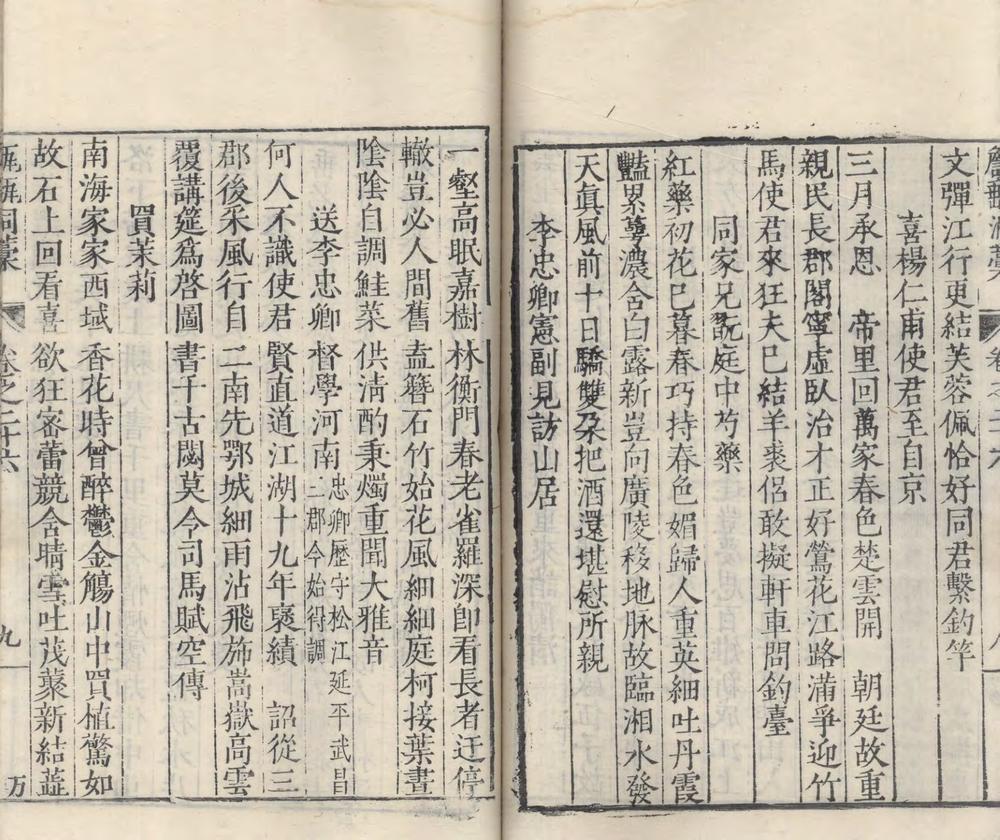 文彈江行更結芙蓉佩恰好同君繫釣竿
喜楊仁甫使君至自京
三月承恩　帝里回萬家春色楚雲開　朝廷故重
親民長郡閣寧虛臥治才正好鶯花江路滿爭迎竹
馬使君來狂夫已結羊裘侶敢擬軒車問釣臺
同家兄翫庭中芍藥
紅藥初花巳暮春巧持春色媚歸人重英細吐丹霞
豔累萼濃含白露新豈向廣陵移地脉故臨湘水發
天眞風前十日驕雙朶把酒還堪慰所親
李忠卿憲副見訪山居
一壑高眠嘉樹林衡門春老雀羅深卽看長者迂停
轍豈必人間舊盍簪石竹始花風細細庭柯接葉晝
陰陰自調鮭菜供淸酌秉燭重聞大雅音
送李忠卿督學河南忠卿歷守松江延平武昌二郡今始得調
何人不識使君賢直道江湖十九年褒績　詔從三
郡後采風行自二南先鄂城細雨沾飛斾嵩嶽高雲
覆講筵爲啓圖書千古閟莫令司馬賦空傳
買茉莉
南海家家西域香花時曾醉鬱金觴山中買植驚如
故石上回看喜欲狂密蕾競含晴雪吐茂蘂新結蘁
甔甀洞藳
卷之二十六
九
万